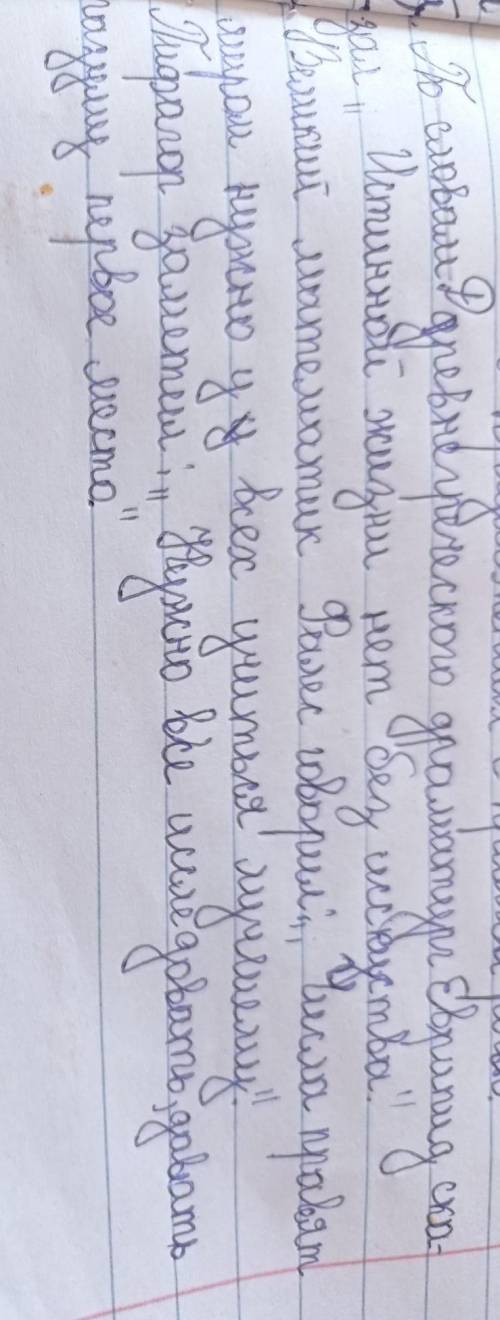 По словам Древнегреческого драматург Еврипид ска-
зал „ Истинной жизни нет без искуства."
Великий математик Фалес говорил:„ Числа правят
миром нужно у всех учиться лучшему."
Пифагор заметил:„ Нужно все исследовать, давать
разуму первое место."